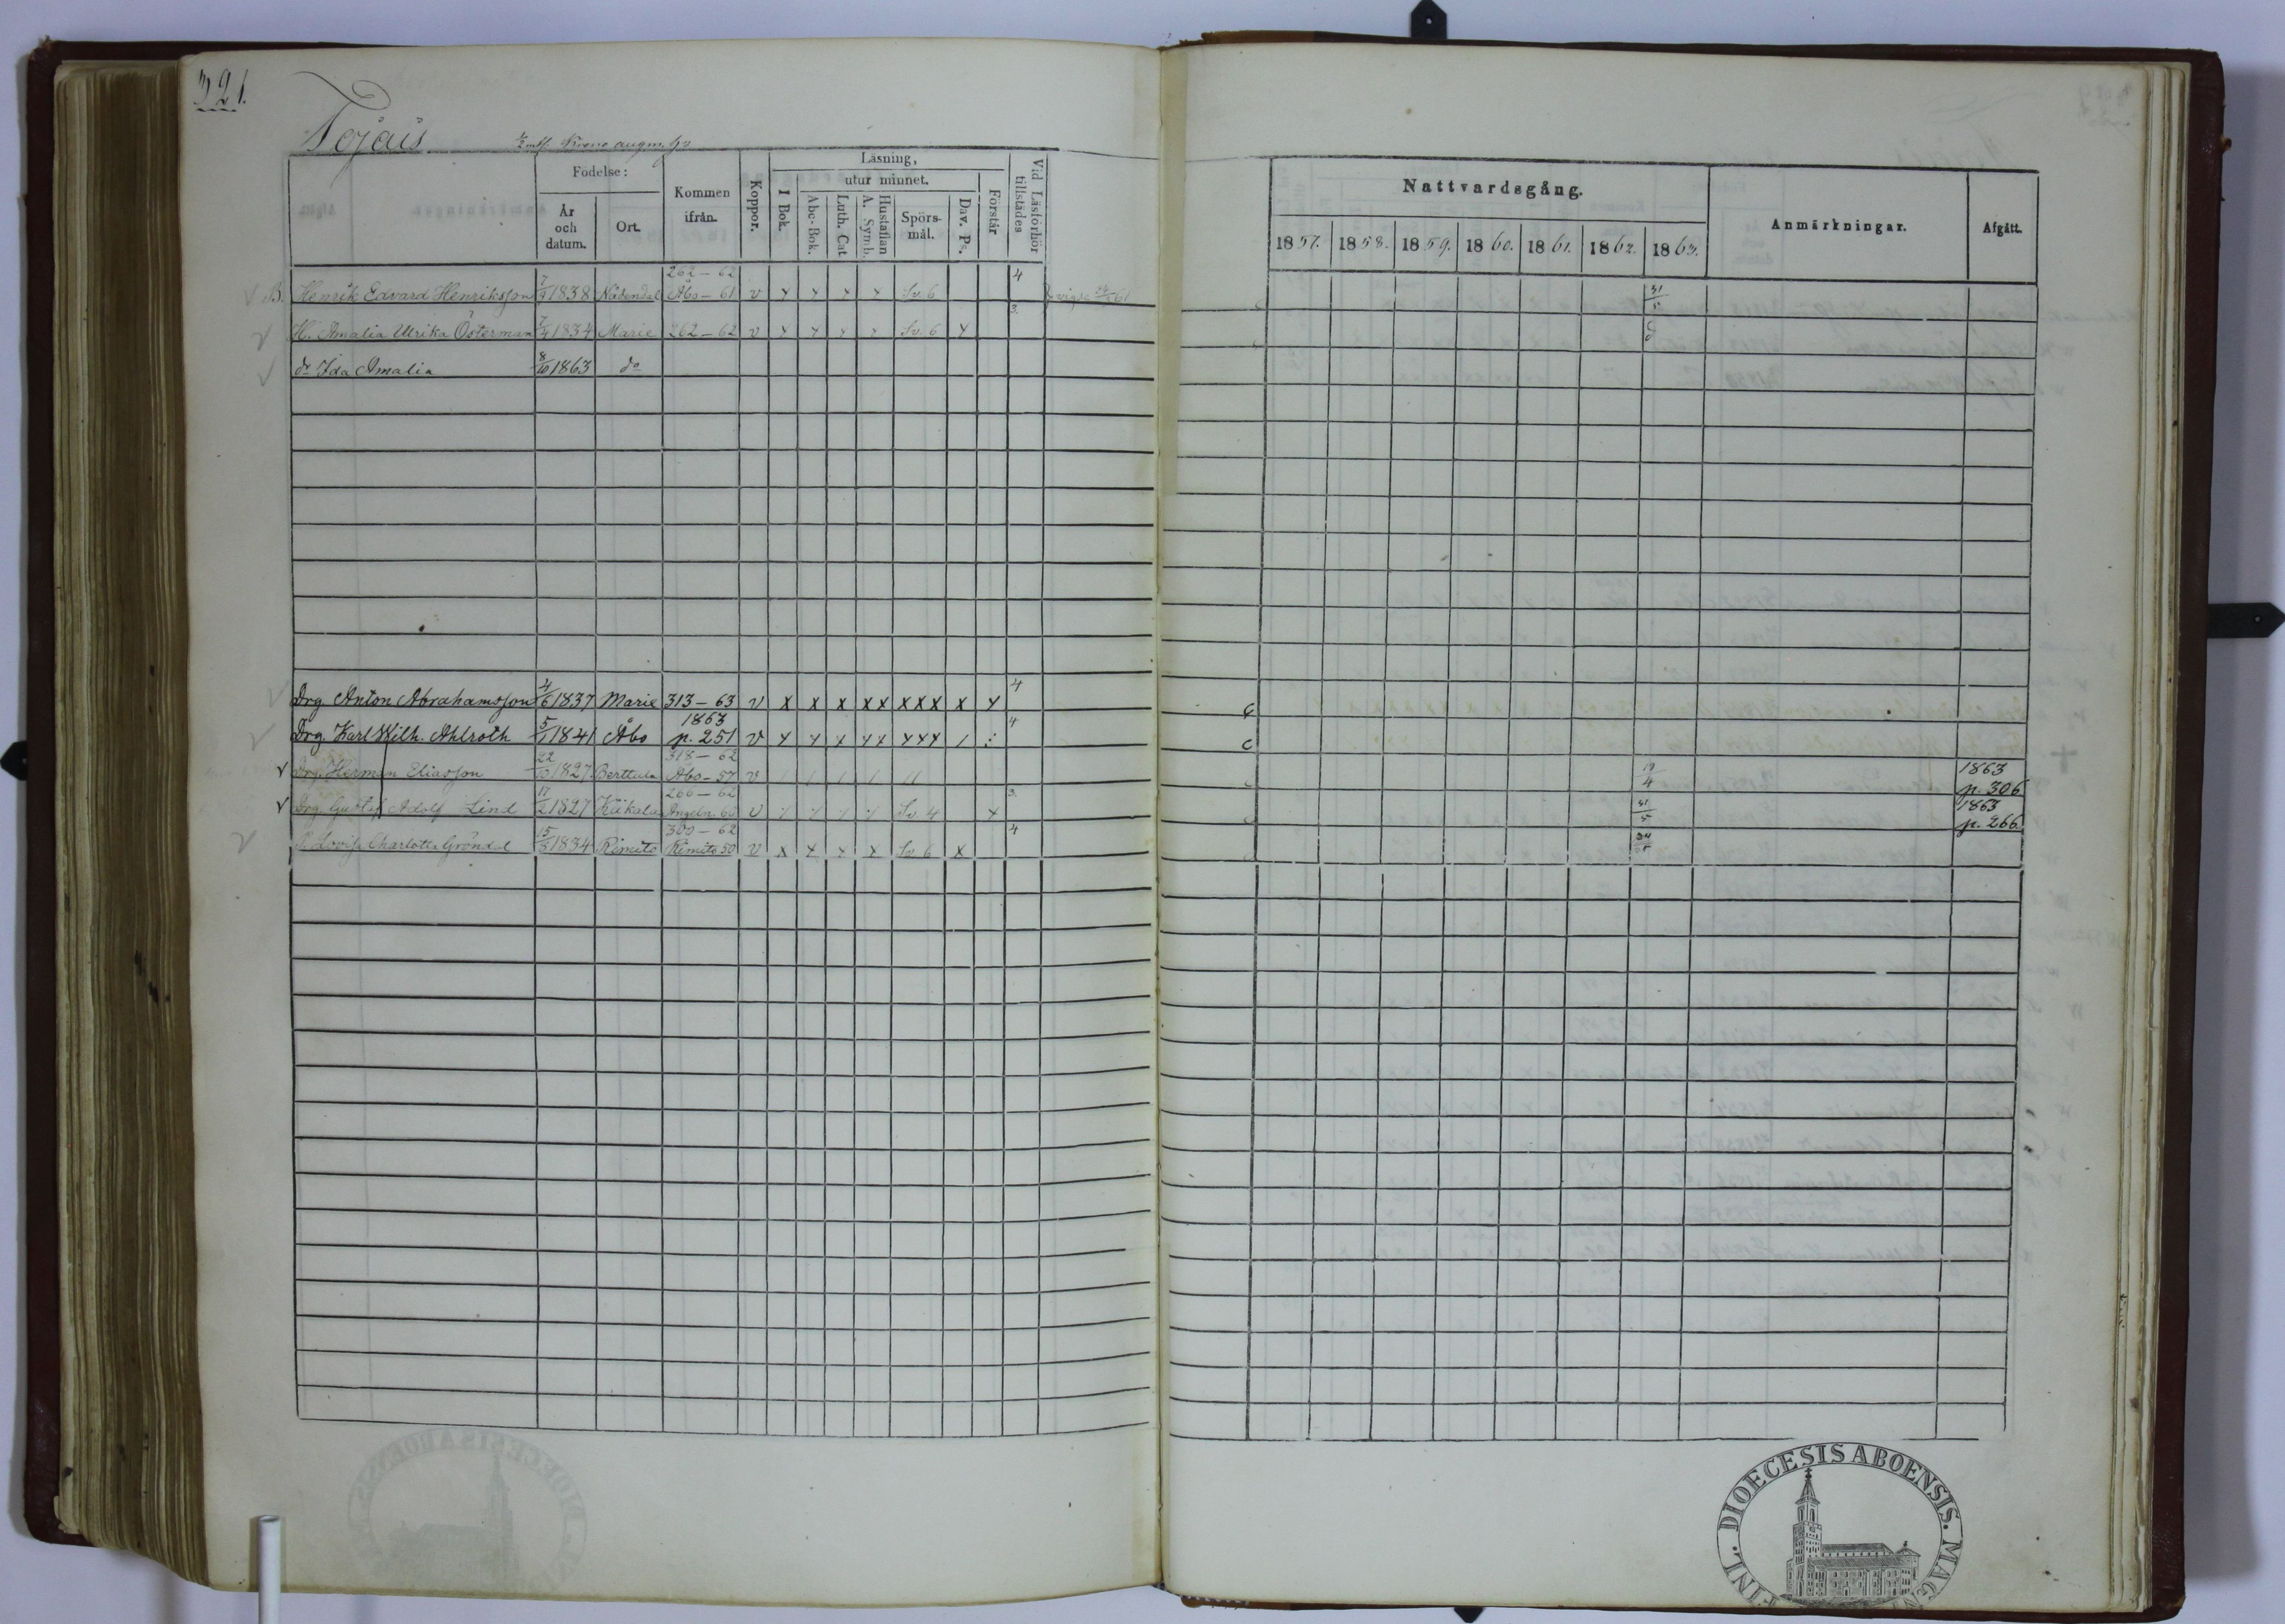 321.
Tojais ½ mtl. Krono augm. h:
Födelse:
År och datum.
Ort.
Kommen ifrån.
Koppor.
Läsning,
I Bok.
utur minnet.
Abc-Bok.
Luth. Cat
Hustaflan A. Symb.
Spörs-mål.
Dav. Ps.
Förstår
Vid Läsförhör tillstädes
Nattvardsgång.
1857. 1858. 1859. 1860. 1861. 1862. 1863.
Anmärkningar.
Afgått.
262-62 4
B. Henrik Edvard Henriksson 1838 Nådendal Åbo-61 v x x x x Sv. 6 vigde 61 31/5
3.
H. Amalia Ulrika Österman 7/4 1834 Marie 262-62 v x x x x Sv. 6 x
dr Ida Amalia 8/10 1863 do
Drg. Anton Abrahamsson 4/6 1837 Marie 313-63 v x x x xx xxx x x 4
1863
Drg. Karl Wilh. Ahlroth 5/1 1841 Åbo p. 251 v x x x xx xxx / 4
318-62
Drg. Herman Eliasson 22/10 1827 Berttula Åbo-57 v / / / / // 19/4 1863 p. 306
260-62
Drg. Gustaf Adolf Lind 17/2 1827 Käkola 60 v Sv. 4 x 3. 31/5 1863 p. 266
309-62
P. Lovisa Charlotta Gröndal 15/3 1834 Rimito Rimito 50 v x x x x Sv. 6 x 4
FINL. DIOECESIS ABOENSIS. MAGN